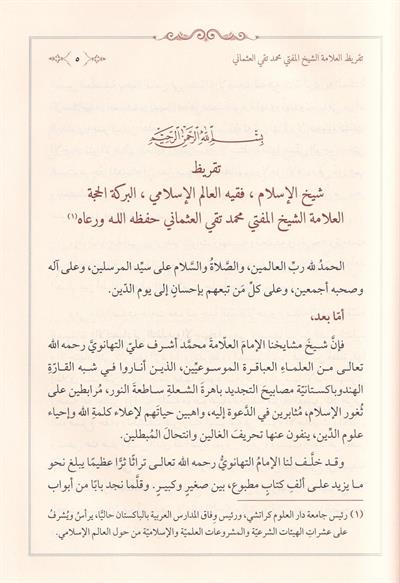 تقريظ العلامة الشيخ المفتي محمد تقي العثماني
٥
بِسْمِ اللهِ الرَّحْمٰنِ الرَّحِيمِ
تقريظ
شيخ الإسلام ، فقيه العالم الإسلامي ، البركة الحجة
العلامة الشيخ المفتي محمد تقي العثماني حفظه الله ورعاه(١)
الحمدُ لله ربِّ العالمين، والصَّلاةُ والسَّلام على سيِّد المرسلين، وعلى آله
وصحبه أجمعين، وعلى كلِّ مَن تبعهم بإحسانٍ إلى يوم الدّين.
أمّا بعد،
فإنَّ شيخَ مشايخنا الإمامَ العلّامةَ محمَّد أشرف عليّ التهانويَّ رحمه الله
تعالى من العلماءِ العباقرة الموسوعيِّين، الذين أناروا في شبه القارّةِ
الهندوباكستانيّة مصابيحَ التجديد باهرةَ الشعلةِ ساطعةَ النور، مرابطين على
ثُغور الإسلام، مُثابرين في الدَّعوة إليه، واهبين حياتَهم لإعلاء كلمةِ الله وإحياء
علوم الدِّين، ينفون عنها تحريفَ الغالين وانتحالَ المُبطلين.
وقد خلَّف لنا الإمامُ التهانويُّ رحمه الله تعالى تراثًا ثرًّا عظيمًا يبلغ نحو
ما يزيد على ألفِ كتابٍ مطبوع، بين صغيرٍ وكبيرٍ. وقلَّما نجد بابًا من أبواب
(١) رئيس جامعة دار العلوم كراتشي، ورئيس وفاق المدارس العربية بالباكستان حاليًّا، يرأسُ ويُشرفُ
على عشراتِ الهيئات الشرعيّة والمشروعات العلميّة والإسلاميّة من حول العالم الإسلامي.